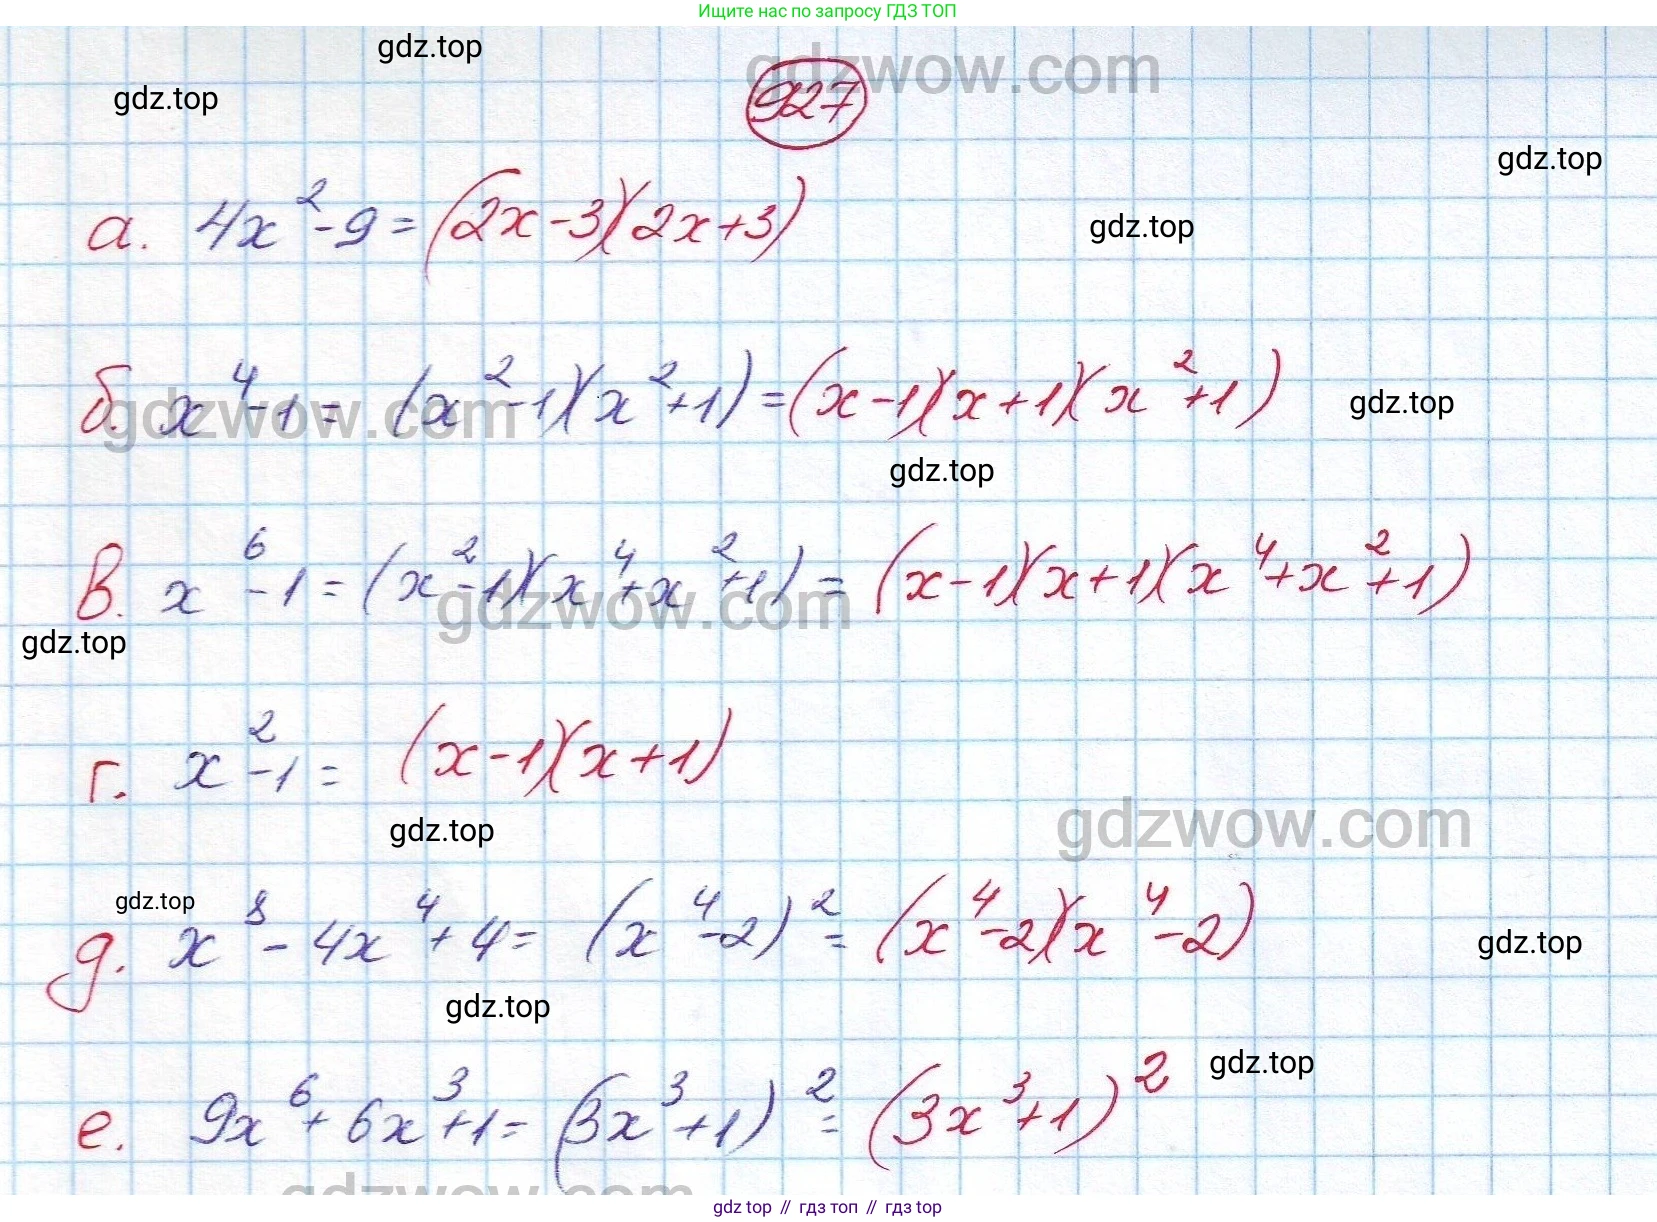 Ищите нас по запросу ГДЗ ТОП
gdz.top
gdzwow.com
gdz.top
927
gdz.top
а. 4x² - 9 = (2x - 3)(2x + 3)
gdz.top
б. x⁴ - 1 = (x² - 1)(x² + 1) = (x - 1)(x + 1)(x² + 1)
gdzwow.com
gdz.top
gdz.top
в. x⁶ - 1 = (x² - 1)(x⁴ + x² + 1) = (x - 1)(x + 1)(x⁴ + x² + 1)
gdzwow.com
gdz.top
г. x² - 1 = (x - 1)(x + 1)
gdz.top
gdzwow.com
gdz.top
д. x⁸ - 4x⁴ + 4 = (x⁴ - 2)² = (x⁴ - 2)(x⁴ - 2)
gdz.top
gdz.top
gdz.top
е. 9x⁶ + 6x³ + 1 = (3x³ + 1)² = (3x³ + 1)²
gdzwow.com
gdz.top // гдз топ // гдз top